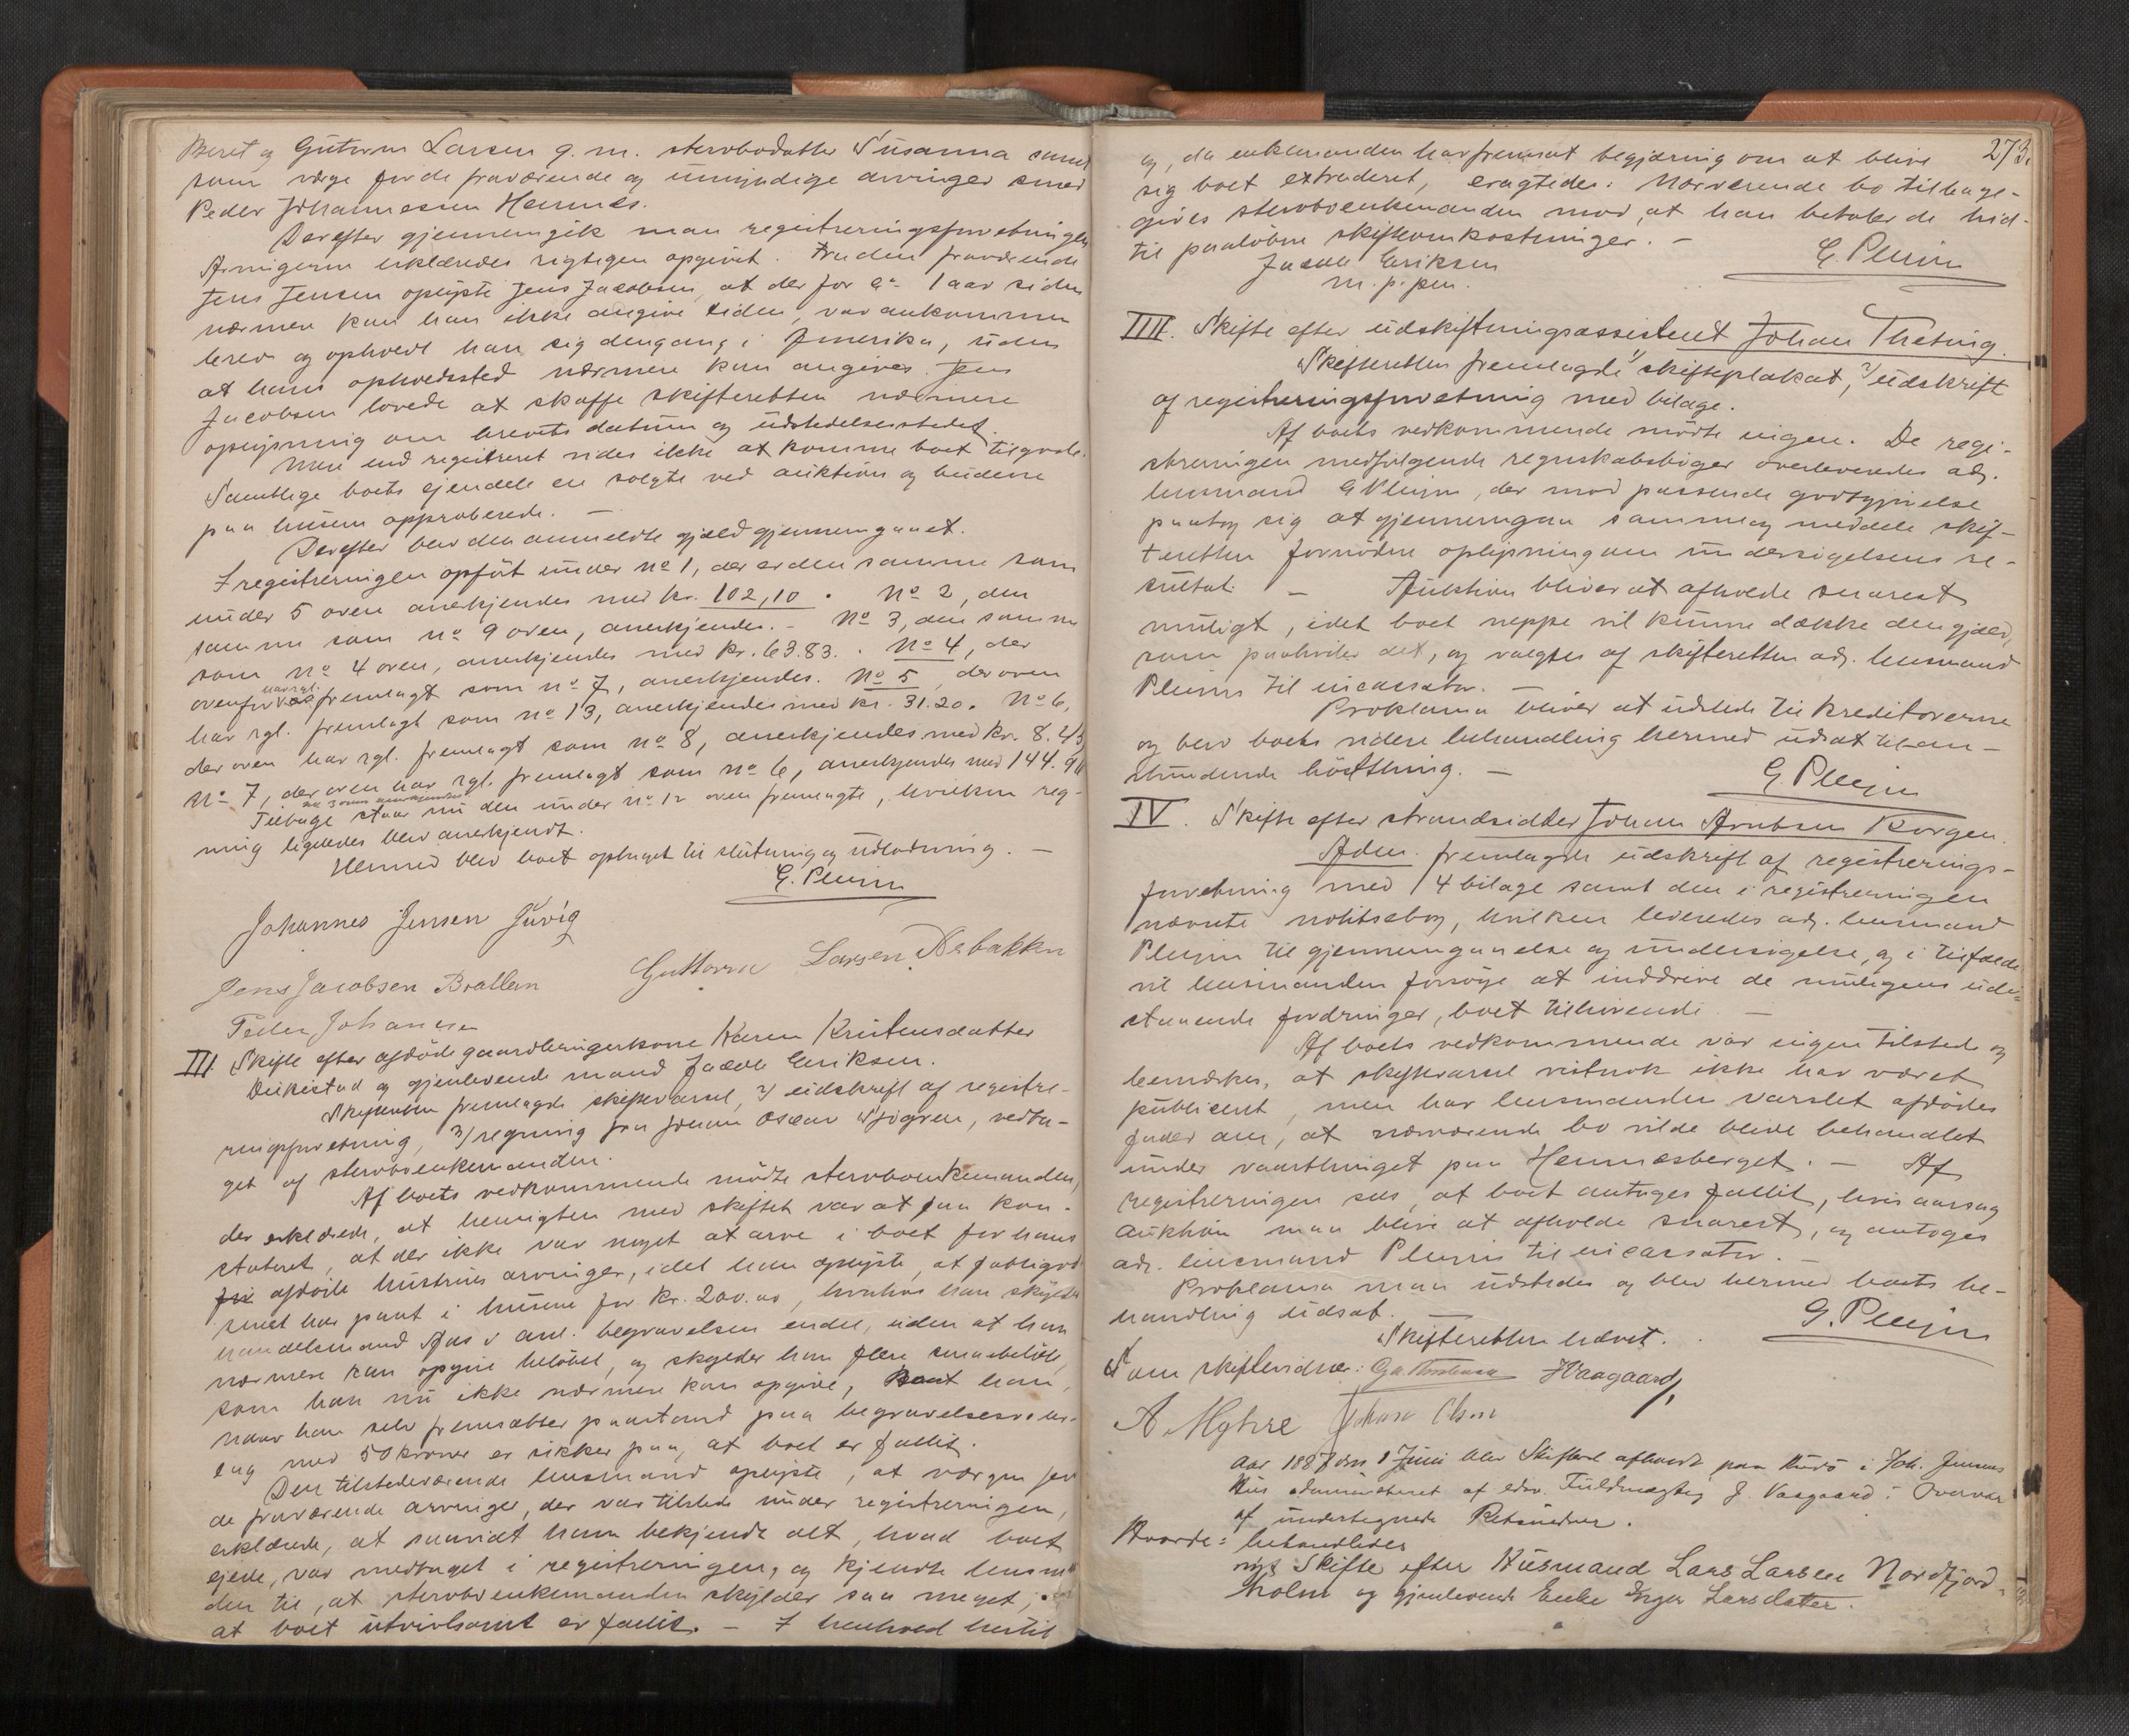 Beret og Gutorm Larsen g. m. sterbodatter Susanna samt
som værge for de fraværende og umyndige arvinger
Peder Johannessen Hemnes.
Derefter gjennemgik man registreringsforretningen
Arvingerne erklæredes rigtigen opgivet. fraværende
Jens Jensen oplyste Jens Jacobsen, at der for ca 1 aar siden
nærmere kan han ikke angive tiden, var ankommen
brev og opholdt han sig dengang i Amerika, uden
at hans opholdssted nærmere kan angives. Jens
Jacobsen lovede at skaffe skifteretten nærmere
oplysning om brevets datum og udstedelsesstedet.
Mere end registreret vides ikke at komme boet tilgode.
Samtlige boets ejendele er solgte ved auktion og budene
paa husene approberede. —
Derefter blev den anmeldte gjæld gjennemgaaet.
I registreringen opført under No 1, der er den samme som
under 5 oven anerkjendes med kr. 102,10. No 2, den
samme som No 9 oven, anerkjendes. - No 3, den samme
som No 4 oven, anerkjendes med kr. 63.83. No 4, der
ovenfor har rgl. fremlagt som No 7, anerkjendes. No 5, der oven
har rgl. fremlagt som No 13, anerkjendes med kr. 31.20. No 6,
der oven har rgl. fremlagt som No 8, anerkjendes med kr. 8.45
No 7, der oven har rgl. fremlagt som No 6, anerkjendes med 144.90
Tilbage staar nu den under No 12 oven fremlagte, hvilken reg-
ning ligeledes blev anerkjendt.
Hermed blev boet optaget til slutning og udlodning. —
G. Pleym
Johannes Jensen Juvig
Guttorm Larsen Aabakken
Jens Jacobsen Brallern
Peder Johansen
III. Skifte efter afdøde gaardbrugerkone Karen Kristensdatter
Leikestad og gjenlevende mand Jacob Eriksen.
Skifteretten fremlagde skiftevarsel, 2) udskrift af registre-
ringsforretning, 3) regning fra Johan Oscar Sjøgren, vedta-
get af sterboenkemanden.
Af boets vedkommende mødte sterboenkemanden,
der erklærede, at hensigten med skiftet var at faa kon-
stateret, at der ikke var noget at arve i boet for hans
afdøde hustrus arvinger, idet han oplyste, at
smet har pant i husene for kr. 200.00, hvorhos han skylder
handelsmand Aas i anl. begravelsen endel, uden at han
nærmere kan opgive beløbet, og skylder han flere smaabeløb,
som han nu ikke nærmere kan opgive, samt han,
naar han selv fremsætter paastand paa begravelsesveder-
lag med 50 kroner er sikker paa, at boet er fallit.
Den tilstedeværende lensmand oplyste, at værgen for
de fraværende arvinger, der var tilstede under registreringen,
erklærede, at saavidt ham bekjendt alt, hvad boet
ejede, var medtaget i registreringen, og kjendte lensman-
den til, at sterboenkemanden skylder saa meget,
at boet utvivlsomt er fallit. — I henhold hertil
273.
og, da enkemanden har fremsat begjæring om at blive
sig boet extraderet, eragtedes: Nærværende bo tilbage-
gives sterboenkemanden mod, at han betaler de hid-
til paaløbne skifteomkostninger. —
G. Pleym
Jacob Eriksen
m. p. pen.
IIII. Skifte efter udskiftningsassistent Johan Thesing.
Skifteretten fremlagde 1) skifteplakat, 2) udskrift
af registreringsforretning med bilage.
Af boets vedkommende mødte ingen. De regi-
streringen medfølgende regnskabsbøger overleveredes adj.
lensmand G Pleym, der mod passende godtgjørelse
paatog sig at gjennemgaa samme og meddele skif-
teretten fornøden oplysning om undersøgelsens re-
sultat. — Auktion bliver at afholde snarest
muligt, idet boet neppe vil kunne dække den gjæld,
som paahviler det, og valgtes af skifteretten adj. lensmand
Pleym til incassator. —
Proklama bliver at udstede til kreditorerne
og blev boets videre behandling hermed udsat til an-
stundende høstthing. —
G. Pleym
IV. Skifte efter strandsidder Johan Arntsen Korgen.
Adm. fremlagde udskrift af registrerings-
forretning med 14 bilage samt den i registreringen
nævnte notitsebog, hvilken leveredes adj. lensmand
Pleym til gjennemgaaelse og undersøgelse, og i tilfælde
vil lensmanden forsøge at inddrive de muligens ude-
staaende fordringer, boet tilhørende —
Af boets vedkommende var ingen tilstede og
bemærkes, at skiftevarsel vistnok ikke har været
publicert, men har lensmanden varslet afdødes
fader om, at nærværende bo vilde blive behandlet
under vaarthinget paa Hemnesberget. — Af
registreringen sees, at boet antages fallit, hvis aarsag
auktion maa blive at afholde snarest, og antoges
adj. lensmand Pleym til incassator. —
Proklama maa udstedes og blev hermed boets be-
handling udsat. —
G. Pleym
Skifteretten hævet.
Som skiftevidner: HVaagaard
A. Myhre Johan Olsen
Aar 1887 den 1 Juni blev Skifteret afholdt paa Husø i Joh. Jensens
Hus administreret af edsv. Fuldmægtig J. Vaagaard i Overvær
af undertegnede Retsvidner.
Hvorda: behandledes
nyt Skifte efter Husmand Lars Larsen Nordfjord-
holm og gjenlevende Enke Inger Larsdatter.